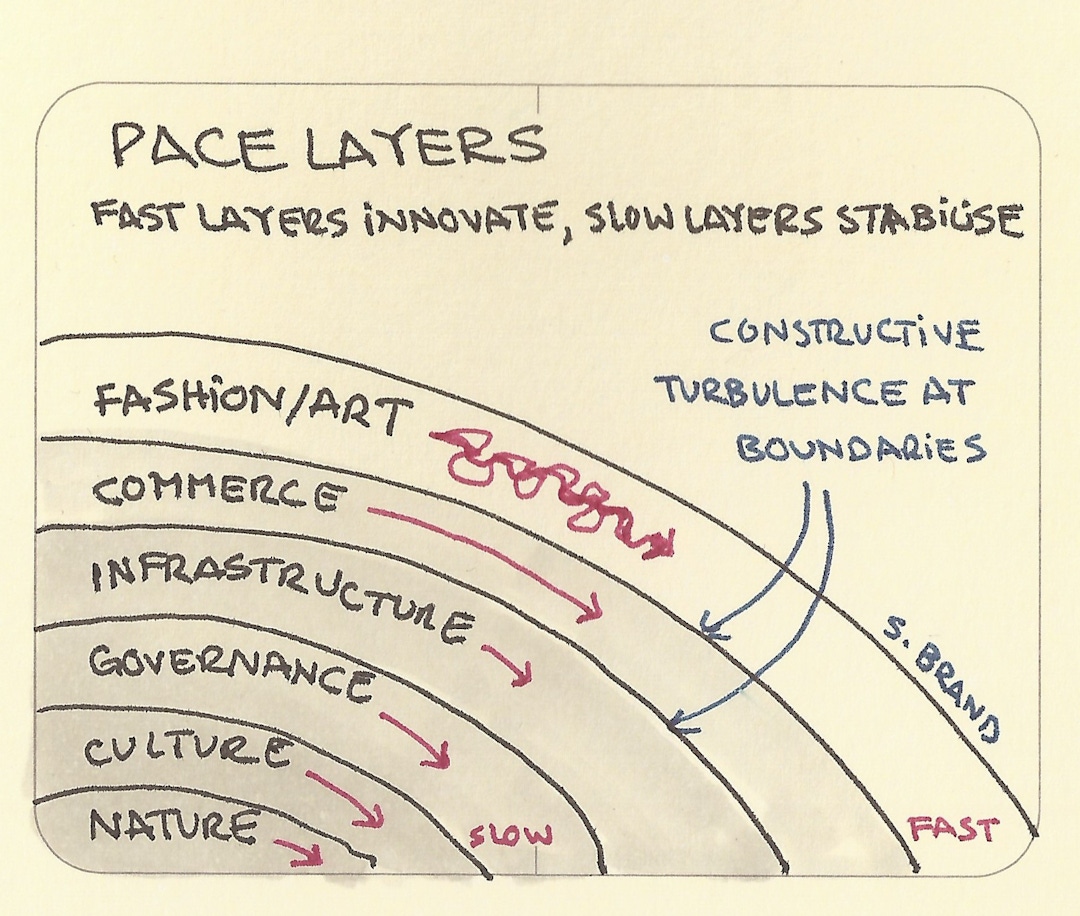 PACE LAYERS
FAST LAYERS INNOVATE, SLOW LAYERS STABILISE
CONSTRUCTIVE
TURBULENCE AT
BOUNDARIES
FASHION/ART
COMMERCE
INFRASTRUCTURE
GOVERNANCE
CULTURE
NATURE
S. BRAND
SLOW
FAST